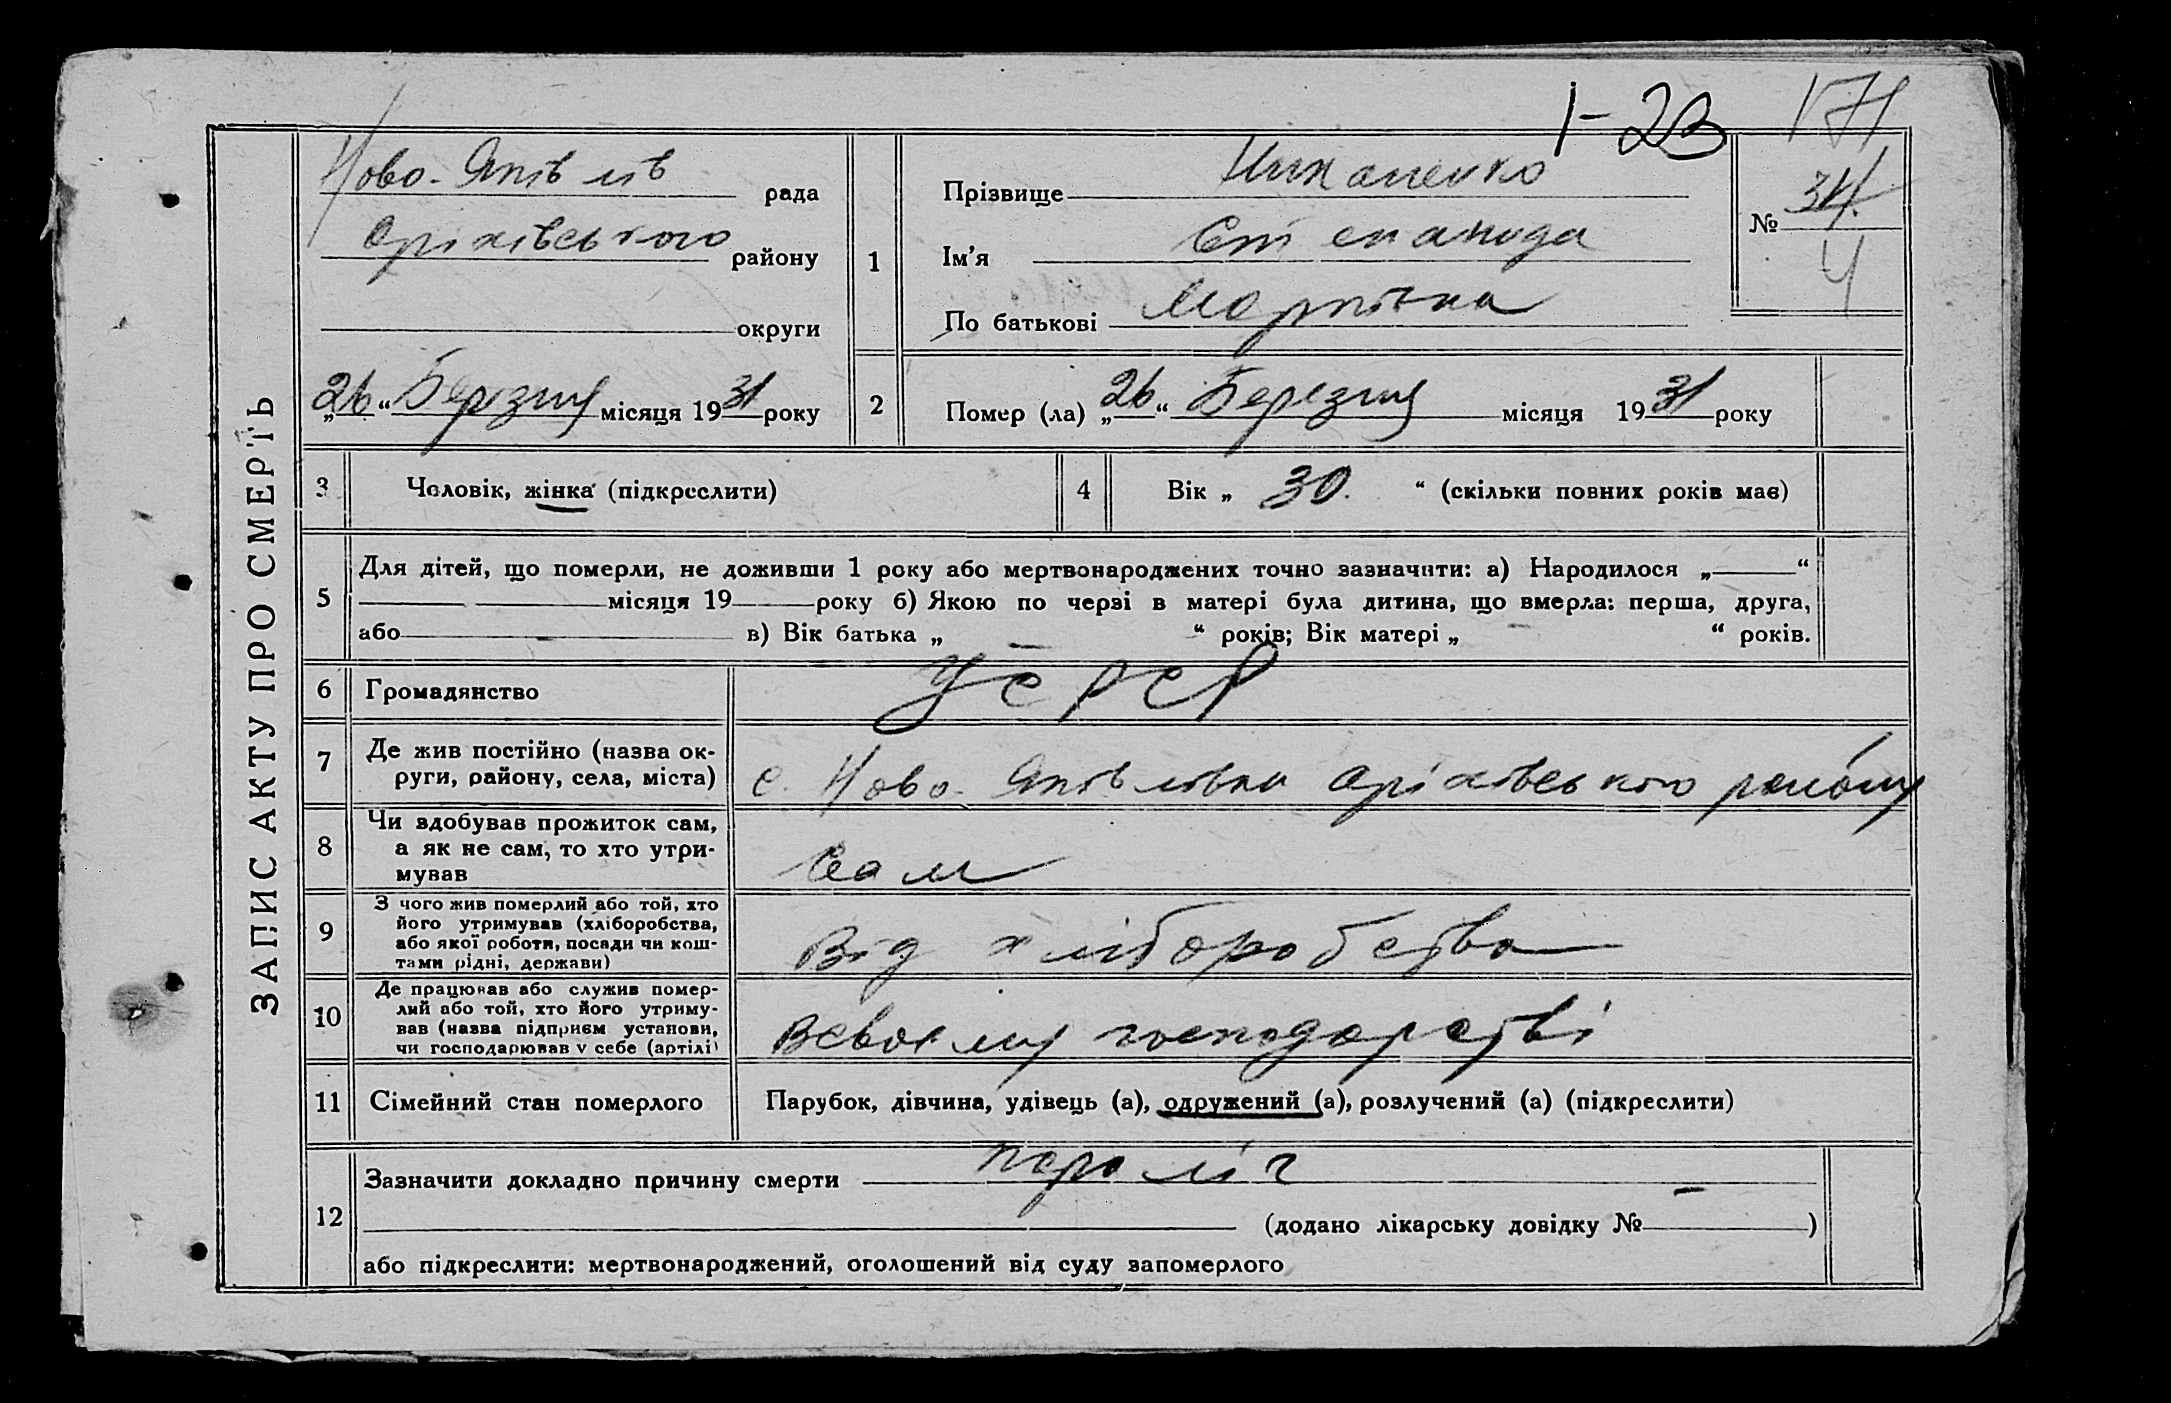 1-23 171
ЗАПИС АКТУ ПРО СМЕРТЬ
Ново-Яківлів рада
Оріхівського району
округи
„26“ Березня місяця 1931 року
1 Прізвище
Ім’я Степанида
По батькові Марківна
№ 34
4
2 Помер (ла) „26“ Березня місяця 1931 року
3 Человік, жінка (підкреслити)
4 Вік „ 30. “ (скільки повних років має)
5 Для дітей, що померли, не доживши 1 року або мертвонароджених точно зазначити: а) Народилося „ “
місяця 19 року б) Якою по черзі в матері була дитина, що вмерла: перша, друга,
або в) Вік батька „ — “ років; Вік матері „ — “ років.
6 Громадянство УСРСР
7 Де жив постійно (назва ок-
руги, району, села, міста) с. Ново-Яківлівка Оріхівського району
8 Чи здобував прожиток сам,
а як не сам, то хто утри-
мував Сам
9 З чого жив померлий або той, хто
його утримував (хліборобства,
або якої роботи, посади чи кош-
тами рідні, держави) Від хліборобства
10 Де працював або служив помер-
лий або той, хто його утриму-
вав (назва підприєм установи,
чи господарював у себе (артілі) Всвоєму господарстві
11 Сімейний стан померлого Парубок, дівчина, удівець (а), одружений (а), розлучений (а) (підкреслити)
12 Зазначити докладно причину смерти параліч
(додано лікарську довідку № — )
або підкреслити: мертвонароджений, оголошений від суду запомерлого